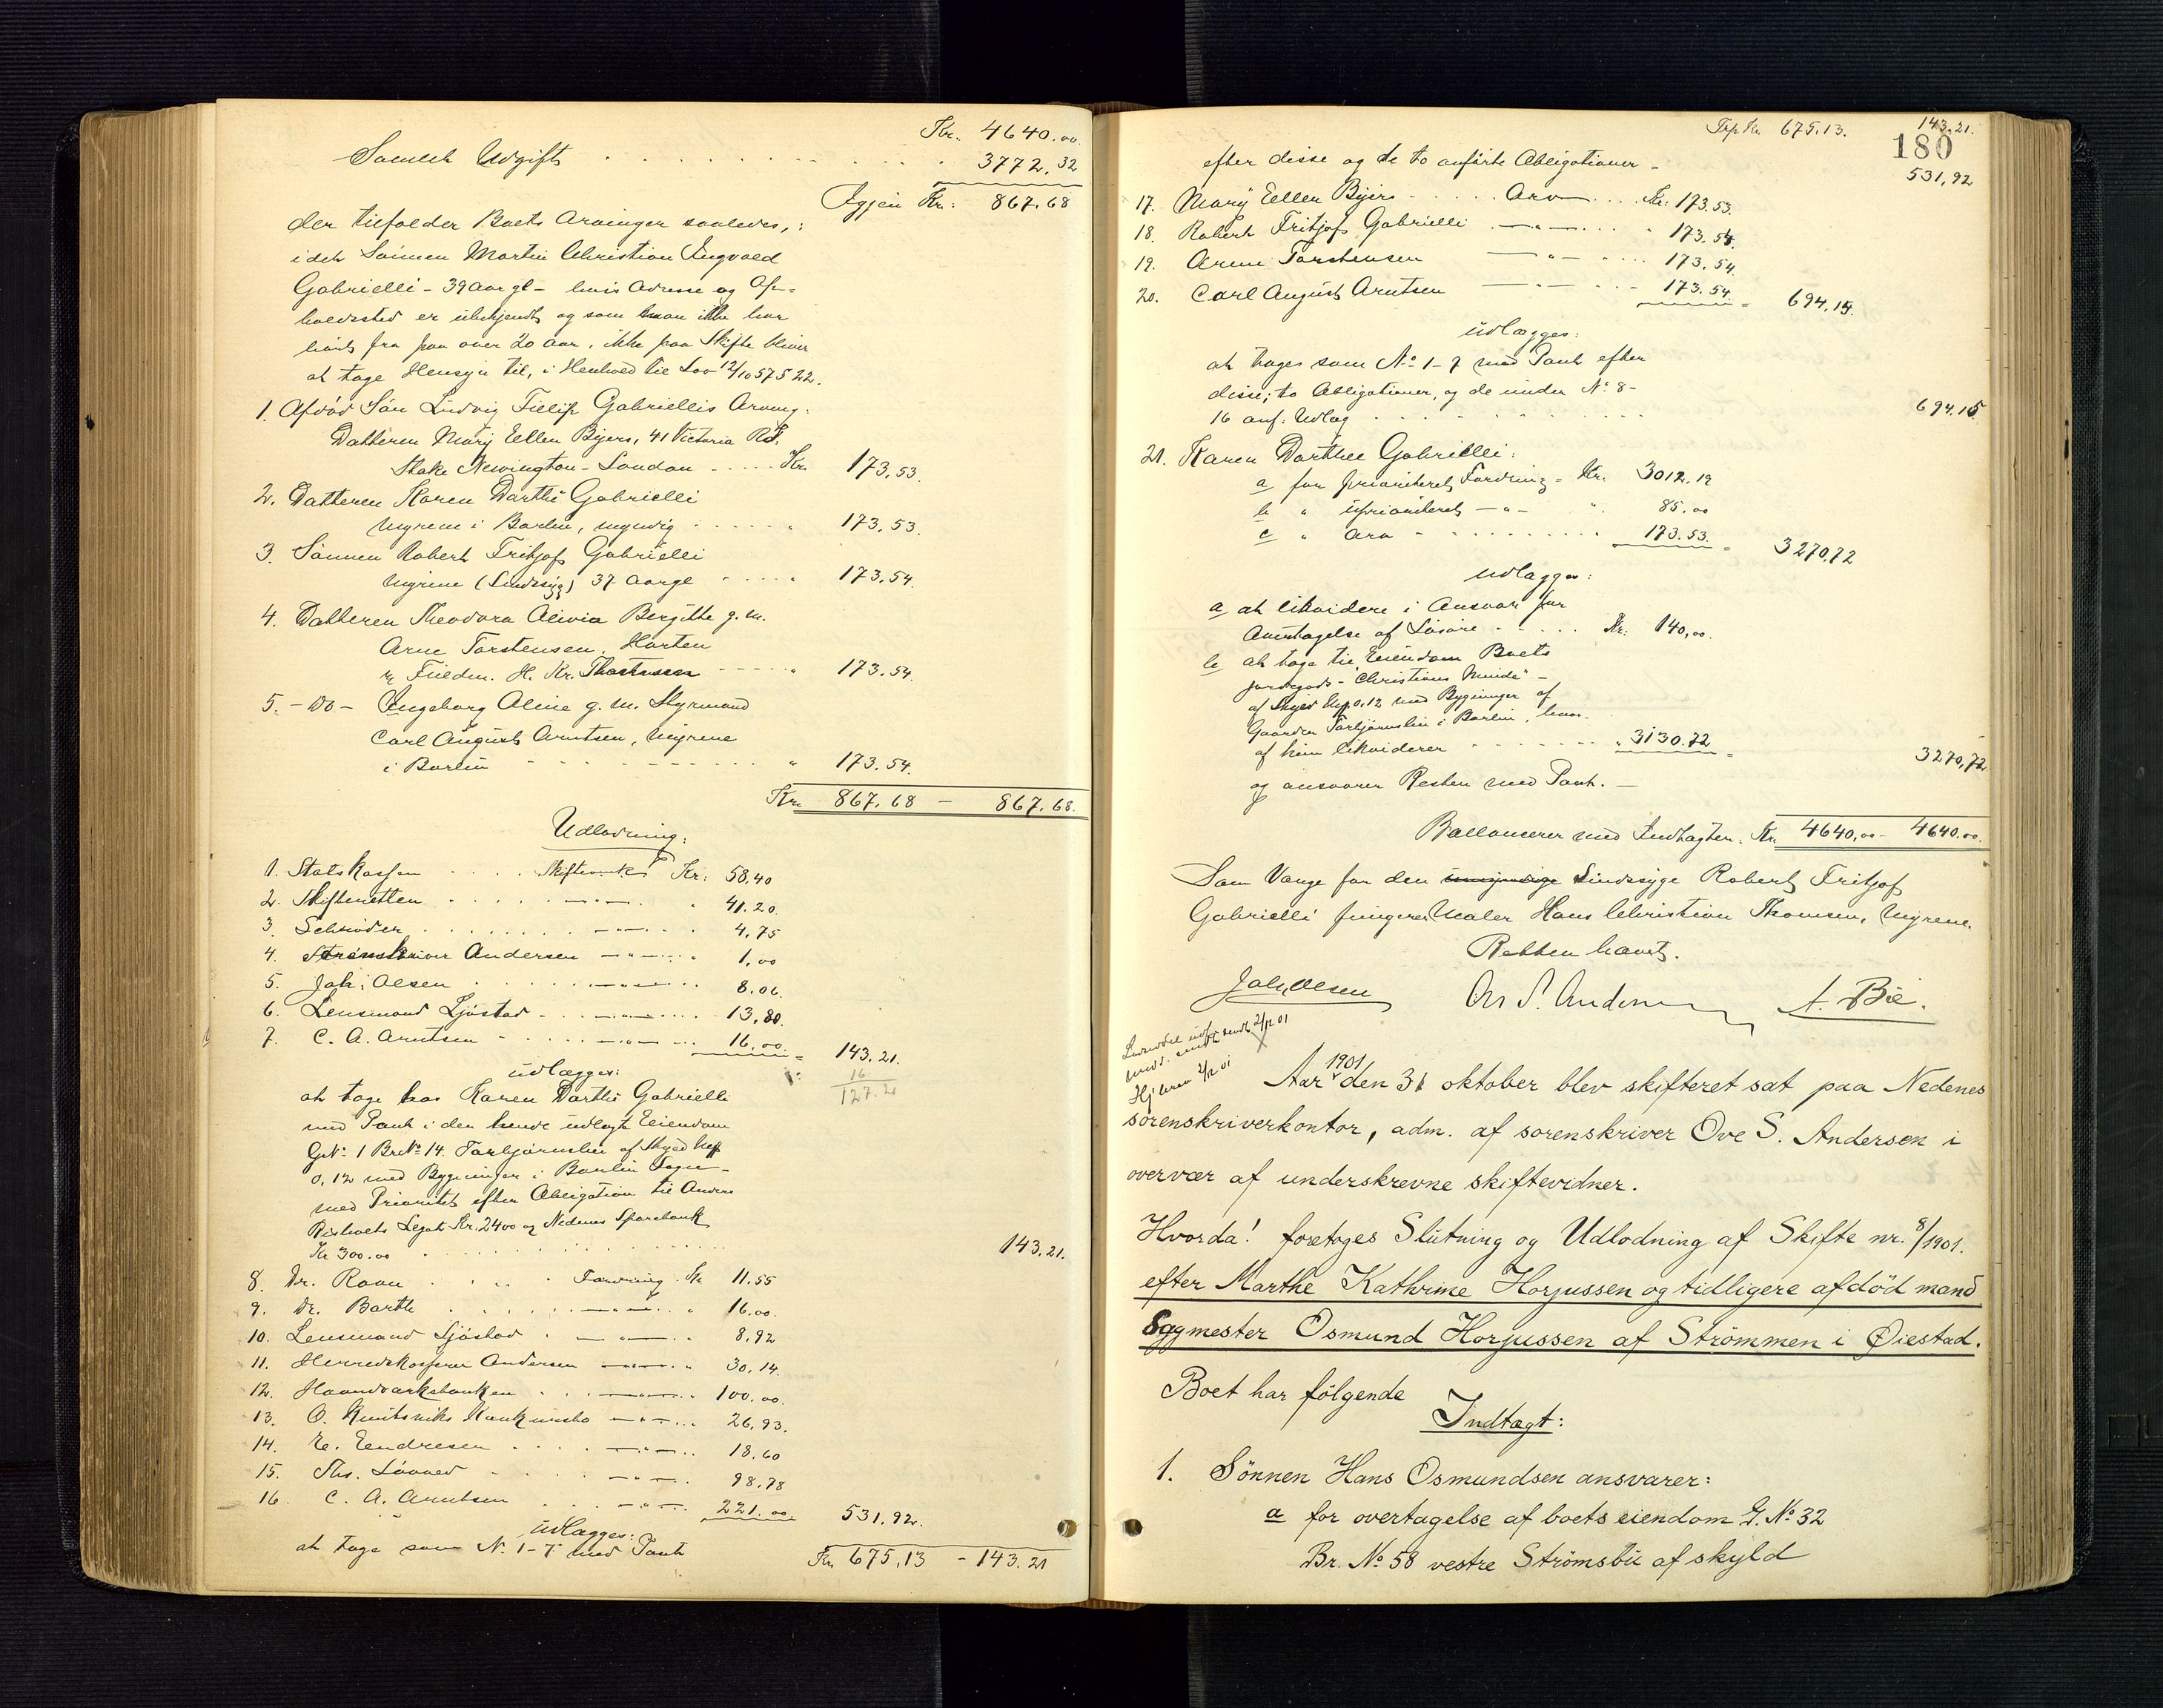 Kr. 4640.00
Samlet Udgift . . . . . . . . 3772.32
Igjen Kr: 867.68
der tilfalder Boets Arvinger saaledes,:
idet Sønnen Martin Christian Ingvald
Gabrielli - 39 Aar gl - hvis Adresse og Op-
holdssted er ubekjendt og som man ikke har
hørt fra paa over 20 Aar, ikke paa Skifte bliver
at tage Hensyn til, i Henhold til Lov 12/10 57 § 22.
1. Afdød Søn Ludvig Fillip Gabriellis Arving:
Datteren Mary Ellen Byers, 41 Victoria Rd.
Stoke Newington - London . . . . Kr. 173.53.
2. Datteren Karen Dorthe Gabrielli
Myrene i Barbu, myndig . . . . . " 173.53.
3. Sønnen Robert Fritjof Gabrielli
Myrene (Sindssyg) 37 Aar gl . . . . " 173.54.
4. Datteren Theodora Olivia Bergitte g. m.
Arne Torstensen, Horten
H. Kr. Thorstensen . . . . " 173.54.
5. - Do - Ingeborg Oline g. m. Styrmand
Carl August Arntsen, Myrene
i Barbu . . . . . . . . " 173.54.
Kr. 867.68 - 867.68.
Udlodning:
1. Statskassen . . . . Skifteomk. Kr: 58,40
2. Skifteretten . . . . —"— . . " 41.20.
3. Schrøder . . . . . . —"— . . 4.75
4. Sorenskriver Andersen —"— . . 1.00
5. Joh: Olsen . . . . —"— . . 8.06.
6. Lensmand Sjøstad . . . —"— . . 13,80.
7. C. A. Arntsen . . . . —"— . . 16.00. = 143.21.
16
127.2
udlægges:
at tage hos Karen Dorthe Gabrielli
med Pant i den hende udlagte Eiendom
G.N: 1 Br.N: 14. Torbjørnsbu af Skyld
0,12 med Bygninger i Barbu Sogn -
med Prioritet efter Obligation til Anders
Legat Kr. 2400 og Nedenes Sparebank
Kr 300.00 . . . . . . . . 143.21.
8. Dr. Raan . . . . Fordring. Kr 11.55
9. Dr. Barth . . . . —"— . " 16.00.
10. Lensmand Sjøstad . —"— . " 8.92
11. Herredskasserer Andersen —"— . " 30.14.
12. Haandværksbanken . . —"— . . 100.00.
13. O. —"— . . 26.93.
14. E. Eendresen . . . . —"— . . 18.60
15. Ths. . . . —"— . 98.78
16. C. A. Arntsen . . . —"— . . 221.00. 531.92.
udlægges:
at tage som N. 1-7 med Pant
Kr. 675,13 - 143.21
Trp Kr. 675.13. 143.21.
180
efter disse og de to anførte Obligationer - 531,92
17. Mary Ellen Byers . . . . . Arv . . . . Kr: 173.53.
18. Robert Fritjof Gabrielli . —"— . . . " 173.54.
19. Arne Torstensen —"— . . . . 173.54.
20. Carl August Arntsen —"— . . . 173.54. = 694,15.
udlægges:
at tages som No 1-7 med Pant efter
disse; to Obligationer, og de under No 8-
16 anf. Udlæg . . . . . . . . 694.15
21. Karen Dorthee Gabrielli:
a for prioriteret Fordring = Kr. 3012.19
b " uprioriteret —"— " 85.00
c " Arv . . . . . . . . 173.53. = 3270,72
udlægges:
a at likvidere i Ansvar for
Overtagelse af Løsøre . . . . . Kr: 140,00.
b at tage til Eiendom Boets
jordegods - "Christians Minde" -
af Skyld 0.12 med Bygninger af
Gaarden Torbjørnsbu i Barbu, hvor-
af hun likviderer . . . . . . . " 3130.72 = 3270,72
og ansvarer Resten med Pant. —
Ballanserer med Indtægten. Kr. 4640,00 - 4640.00.
Som Værge for den umyndige Sindssyge Robert Fritjof
Gabrielli fungerer Maler Hans Christian Thomsen, Myrene.
Retten hævet.
Joh. Olsen Ove S. Andersen A. Bie.
sendt 2/12 01
2/12 01
Aar 1901 den 31 oktober blev skifteret sat paa Nedenes
sorenskriverkontor, adm. af sorenskriver Ove S. Andersen i
overvær af underskrevne skiftevidner.
Hvorda! foretoges Slutning og Udlodning af Skifte nr. 8/1901.
efter Marthe Kathrine Horjussen og tidligere afdöd mand
Byggmester Osmund Horjussen af Strömmen i Öiestad.
Boet har fölgende
Indtægt:
1. Sönnen Hans Osmundsen ansvarer:
a for overtagelse af boets eiendom G. No 32
Br. No 58 vestre Strömsbu af skyld